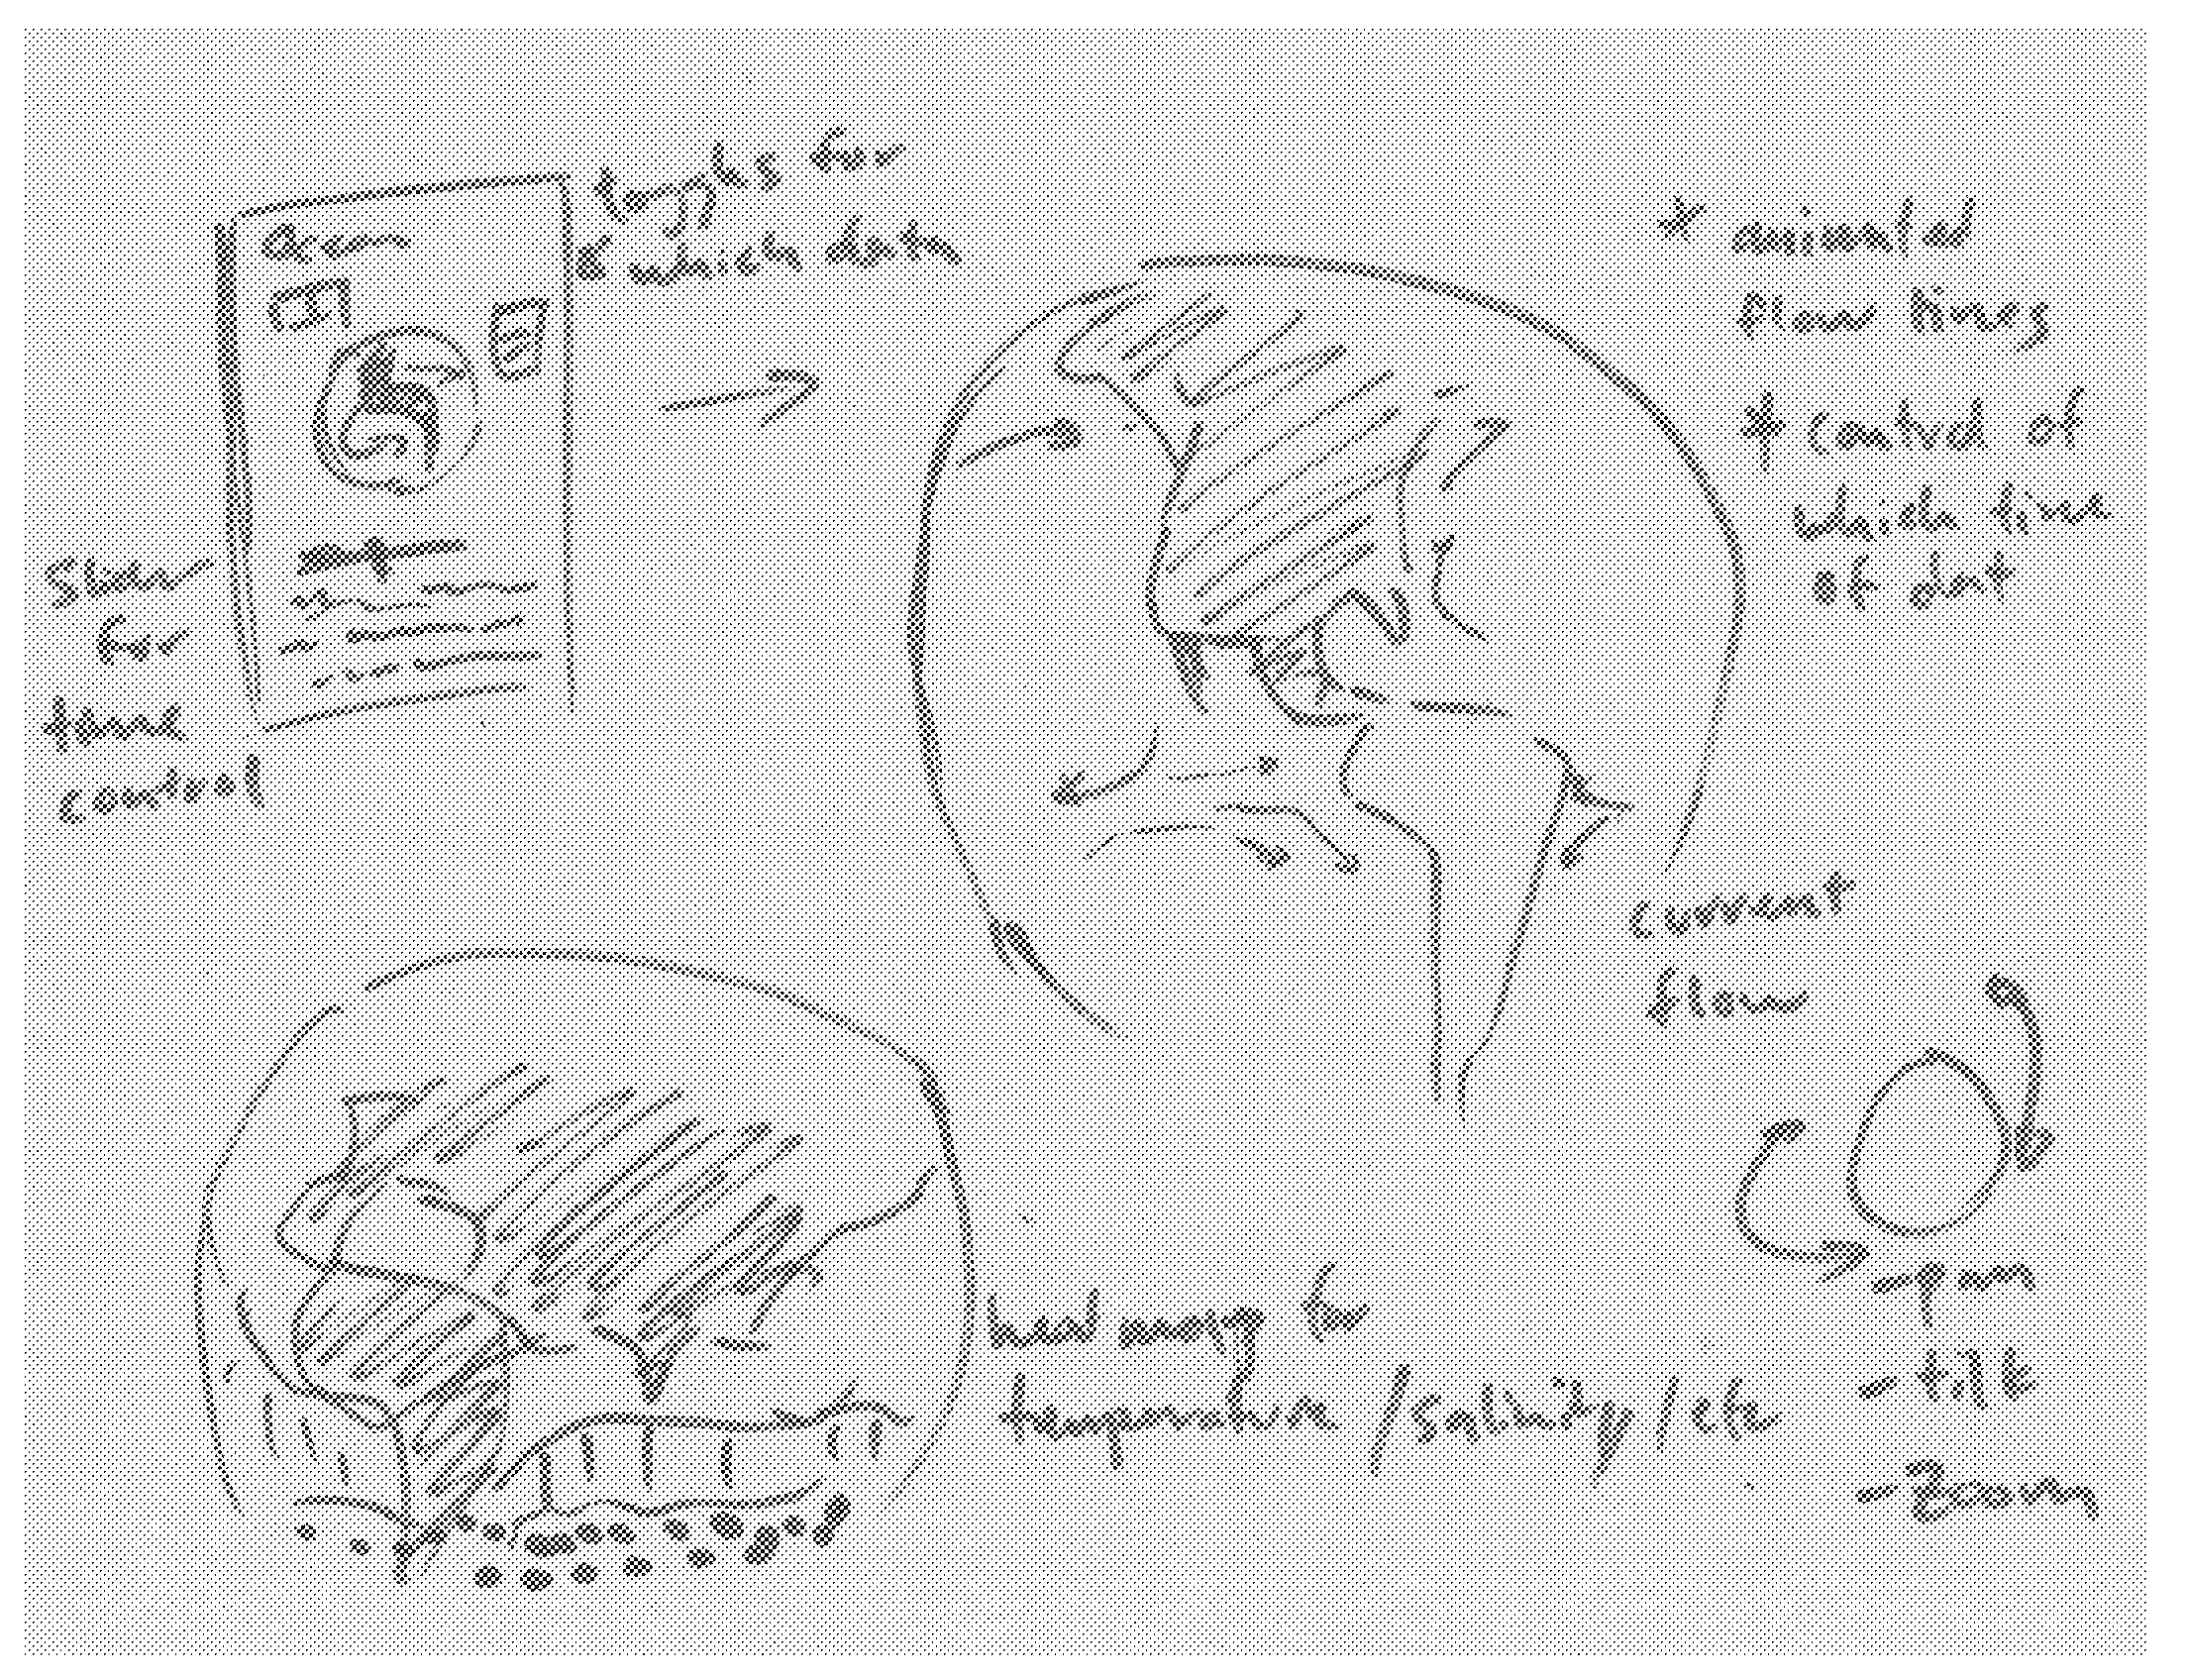 Ocean
toggles for
which data
Slider
for
time
control
* animated
flow lines
* control of
which time
of data
current
flow
heat map for
temperature / salinity / etc
- pan
- tilt
- zoom